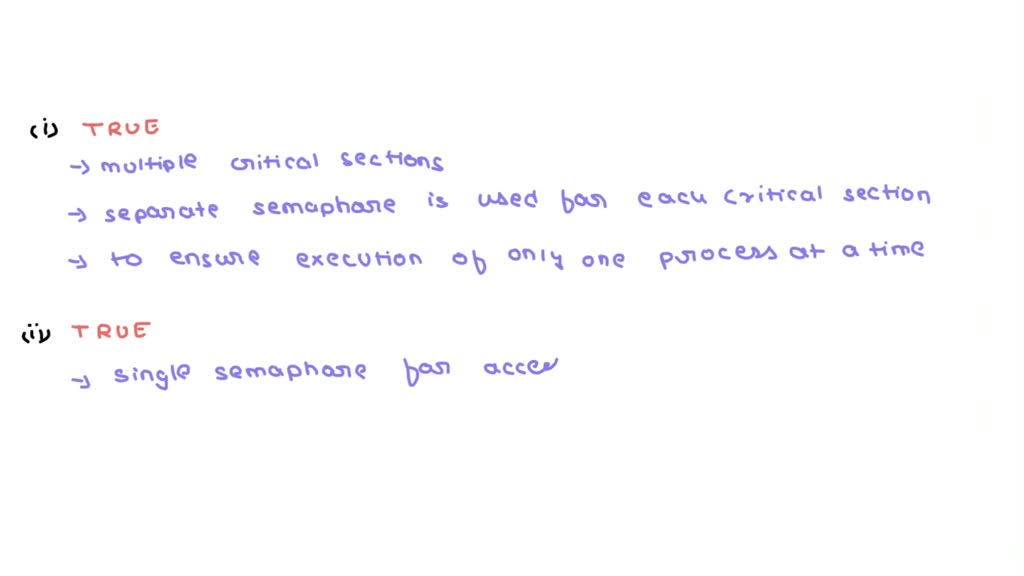 (i) TRUE
→ multiple critical sections
→ separate semaphore is used for each critical section
→ to ensure execution of only one process at a time
(ii) TRUE
→ single semaphore for acces